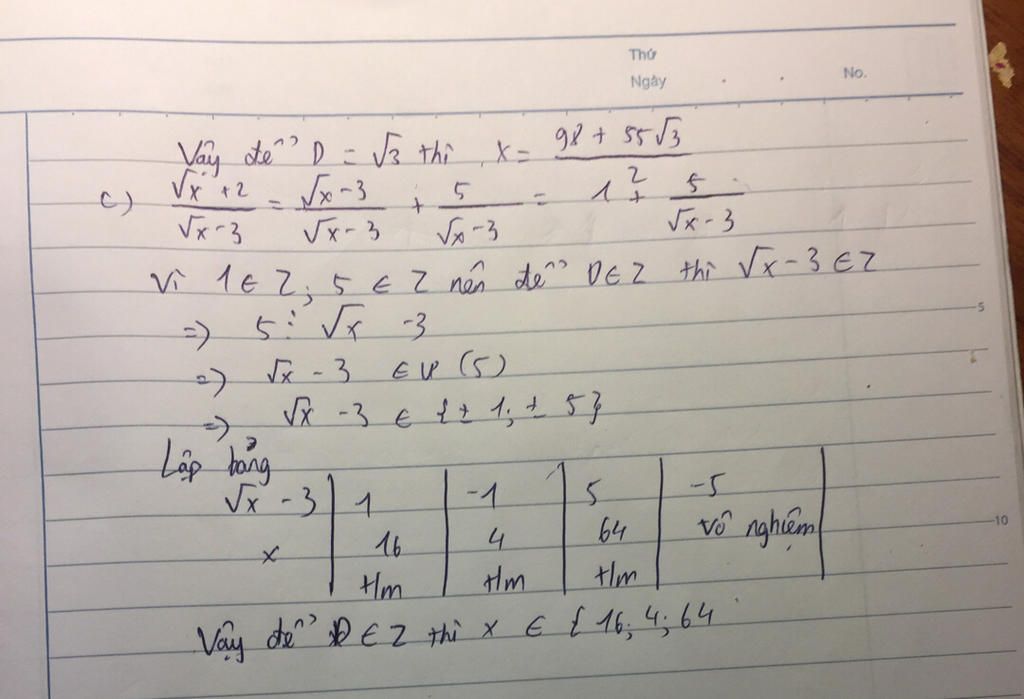 Thứ
Ngày . . No.
Vậy để D = √3 thì x = (98 + 55√3)/2
c) (√x + 2)/(√x - 3) = (√x - 3)/(√x - 3) + 5/(√x - 3) = 1 + 5/(√x - 3)
Vì 1 ∈ Z; 5 ∈ Z nên để D ∈ Z thì √x - 3 ∈ Z
=> 5 ⋮ √x - 3
5
=> √x - 3 ∈ Ư (5)
=> √x - 3 ∈ {± 1; ± 5}
Lập bảng
√x - 3 | 1 | -1 | 5 | -5
x | 16 | 4 | 64 | vô nghiệm
10
t/m | t/m | t/m
Vậy để D ∈ Z thì x ∈ { 16; 4; 64